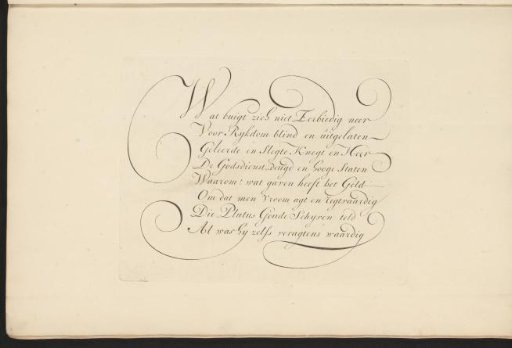 Wat buigt zich niet Eerbiedig neer
Voor Rykdom blind en uitgelaten
Geleerde en Slegte Knegt en Heer
De Godsdienst Deugd en hooge Staten
Waarom? wat gaven heeft het Geld
Om dat men Vroom agt en regtvaardig
Die Platus Goude Schyven teld
Al was hy zelfs veragtens waardig